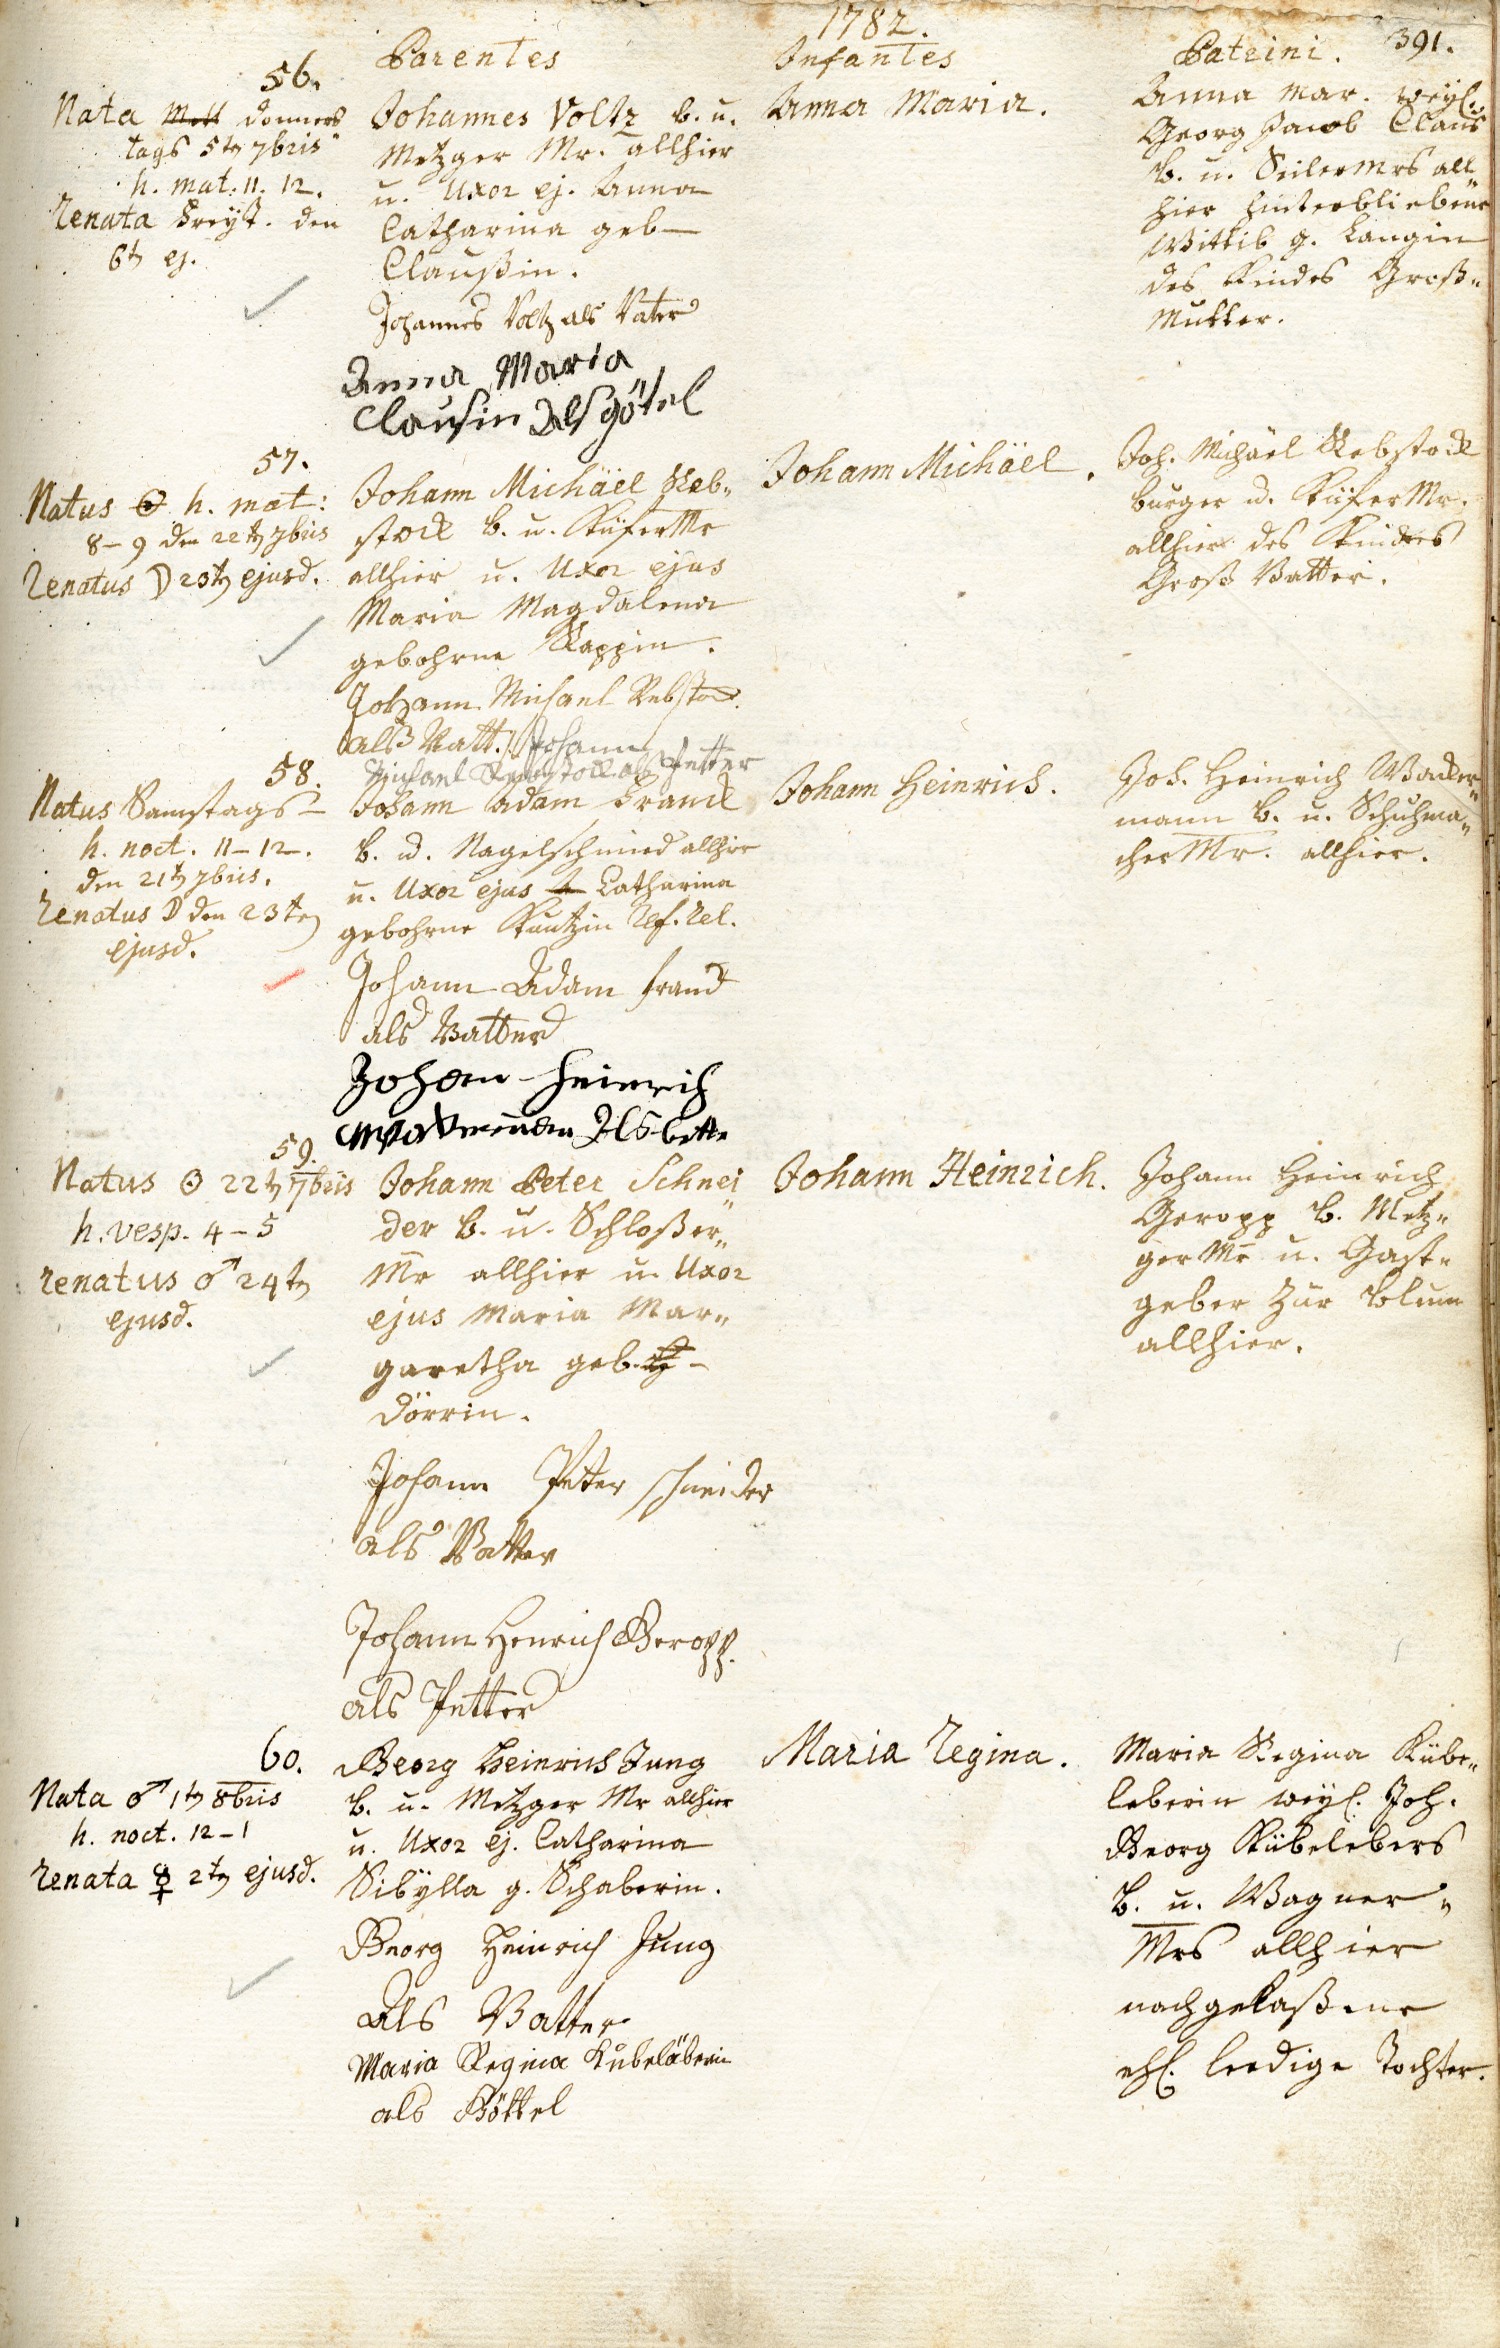 1782.
391.
Parentes
Infantes
Patrini.
56.
Nata Mitt donners
tags 5tn 7bris
h. mat. 11. 12.
Renata Freyt. den
6tn ej.
Johannes Voltz b. u.
Metzger Mr. allhier
u. Uxor ej. Anna
Catharina geb
Claußin.
Johannes Voltz als Vater
Anna Maria
Clausin Als götel
Anna Maria.
Anna Mar. weyl.
Georg Jacob Claus
b. u. Seilermrs all
hier hinterbliebene
Wittib g. Langin
des Kindes Groß„
Mutter.
57.
Natus ☉ h. mat:
8–9 den 22tn 7bris
Renatus ☽ 23tn ejusd.
Johann Michäel Reb„
stock b. u. Küfer Mr
allhier u. Uxor ejus
Maria Magdalena
gebohrne Kappin.
Johann Michael Rebstock
alß Vatt. Johann
Michael Rebstock als Petter
Johann Michäel.
Joh. Michäel Rebstock
burger u. Küfer Mr.
allhier des Kindes
Groß Vatter.
58.
Natus Samstags –
h. noct. 11–12.
den 21tn 7bris.
Renatus ☽ den 23tn
ejusd.
Johann Adam Franck
b. u. Nagelschmied allhier
u. Uxor ejus Catharina
gebohrne Kautzin Ref. Rel.
Johann Adam franck
als Vatter
Johann Heinrich
Wackermann Als bette
Johann Heinrich.
Joh. Heinrich Wacker„
mann b. u. Schuhma„
cher Mr. allhier.
59.
Natus ☉ 22tn 7bris
h. vesp. 4–5
renatus ♂ 24tn
ejusd.
Johann Peter Schnei
der b. u. Schloßer„
Mr allhier u. Uxor
ejus Maria Mar„
garetha geb. –
Dörrin.
Johann Peter schneider
als Vatter
Johann Henrich Geropp.
als Petter
Johann Heinrich.
Johann Heinrich
Geropp b. Metz„
ger Mr u. Gast„
geber zur Blum
allhier.
60.
Nata ♂ 1tn 8bris
h. noct. 12–1
Renata ☿ 2tn ejusd.
Georg Heinrich Jung
b. u. Metzger Mr allhier
u. Uxor ej. Catharina
Sibÿlla g. Schaberin.
Georg Heinrich Jung
Als Vatter
Maria Regina Kubeläberin
als Göttel
Maria Regina.
Maria Regina Kübe„
leberin weyl. Joh.
Georg Kübelebers
b. u. Wagner„
Mrs allhier
nachgelaßene
ehl. leedige Tochter.